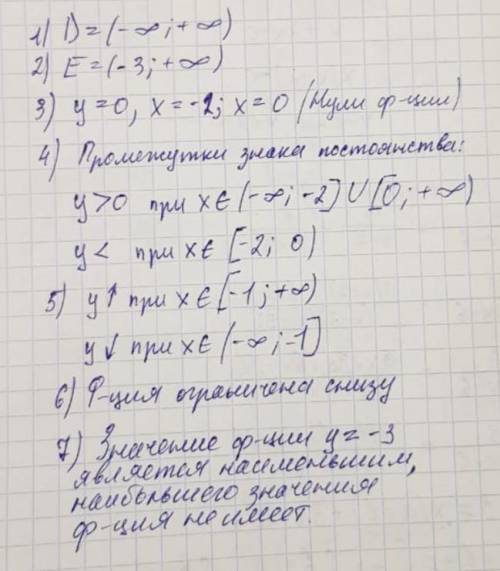 1) D = (-∞; +∞)
2) E = (-3; +∞)
3) y=0, x=-2; x=0 (Нули ф-ции)
4) Промежутки знака постоянства:
y>0 при x∈(-∞; -2]∪[0; +∞)
y< при x∈ [-2; 0)
5) y↑ при x∈[-1; +∞)
y↓ при x∈ (-∞; -1]
6) Ф-ция ограничена снизу
7) Значение ф-ции y = -3
является наименьшим,
наибольшего значения
ф-ция не имеет.